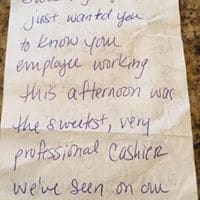 just wanted you
to know your
employee working
this afternoon was
the sweetest, very
professional Cashier
we've seen on our